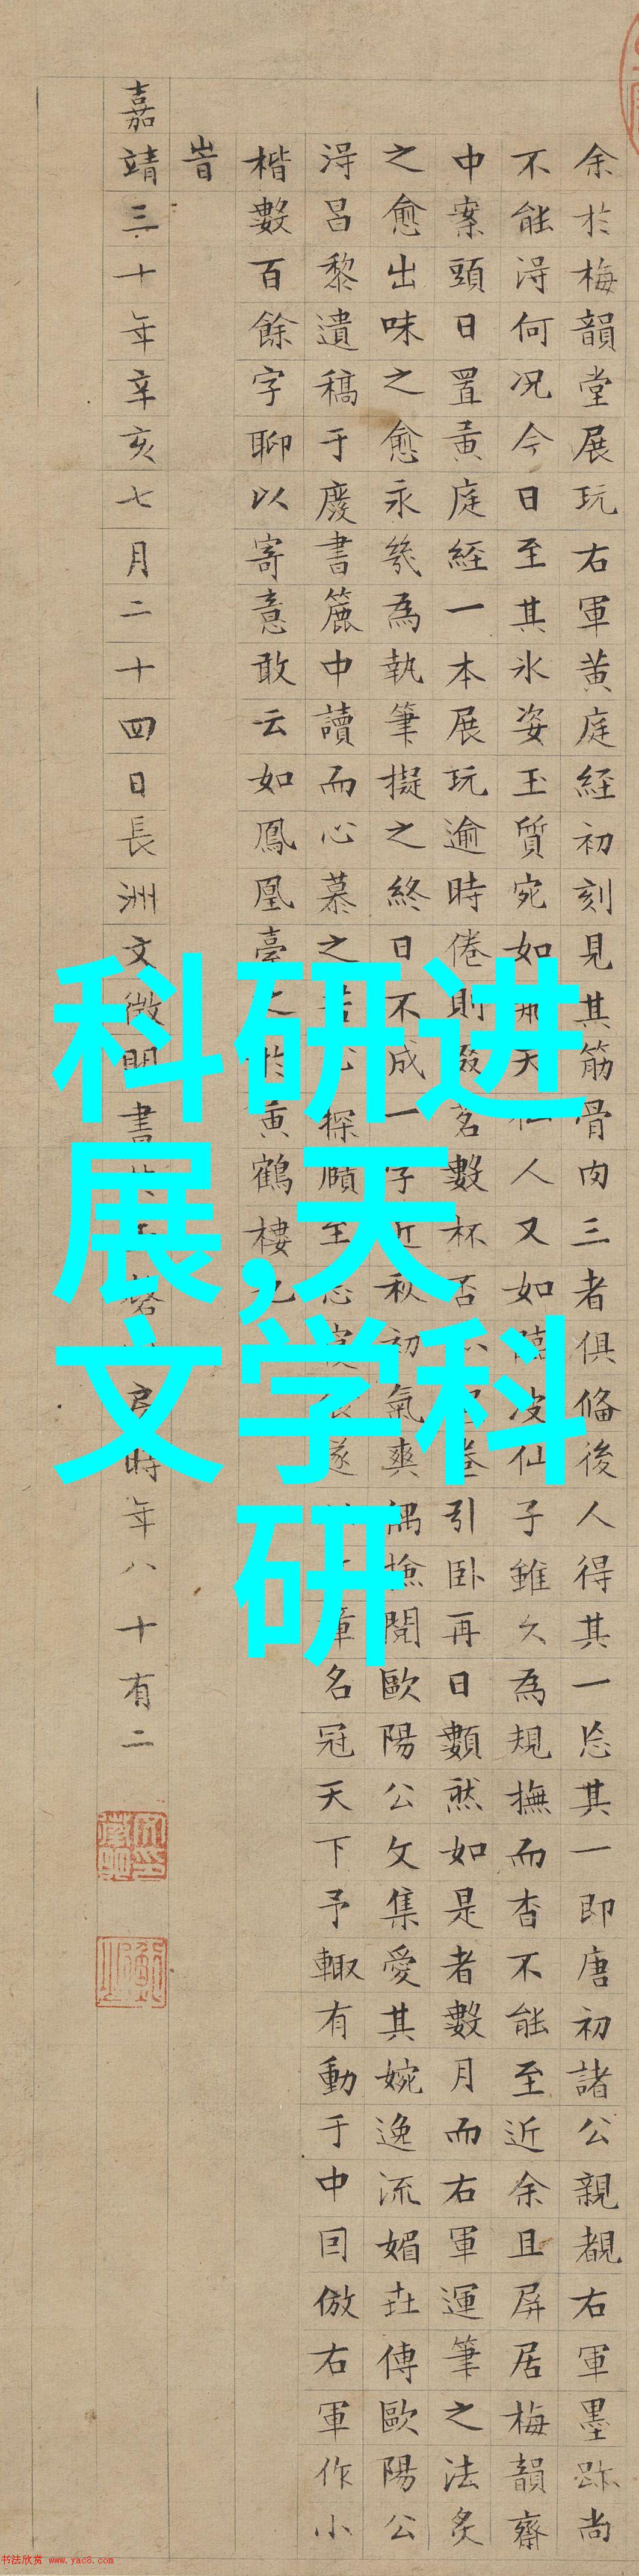 余於梅韻堂展玩右軍黄庭經初刻見其筋骨肉三者俱俻後人得其一忘其一即唐初諸公親覩右軍墨跡尚
不能淂何况今日至其氷姿玉質宛如那天仙人又如臨波仙子雖久為規撫而杳不能至近余且屏居梅韻齋
中案頭日置黄庭經一本展玩逾時倦則啜茗數杯否引卧再日數然如是者數月而右軍運筆之法炙
之愈出味之愈永幾為執筆擬之終日不成一字近秋初氣爽偶撿閱歐陽公文集愛其婉逸流媚世傳歐陽公
淂呂黎遺稿于廢書簏中讀而心慕之苦心探賾至忘寢食遂以文章名冠天下予輙有動于中囙倣右軍作小
楷數百餘字聊以寄意敢云如鳳凰臺之於黄鶴樓也
旹
嘉靖三十年辛亥七月二十四日長洲文徴明書於時年八十有二
科研进
展,天
文学科
研
书法欣赏 www.yac8.com